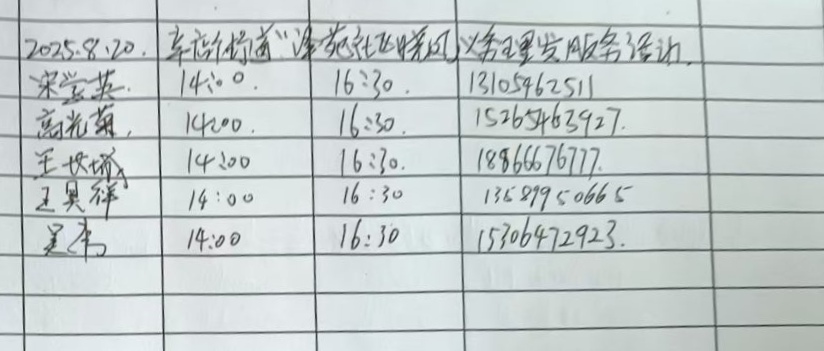 2025.8.20. 辛店街道"泽苑社区暖风"义务理发服务活动.
宋学英. 14:00. 16:30. 13105462511
高光菊. 14:00. 16:30. 15265463927.
王长城 14:00 16:30. 18866676777.
王具祥 14:00 16:30 13589950665
14:00 16:30 15306472923.